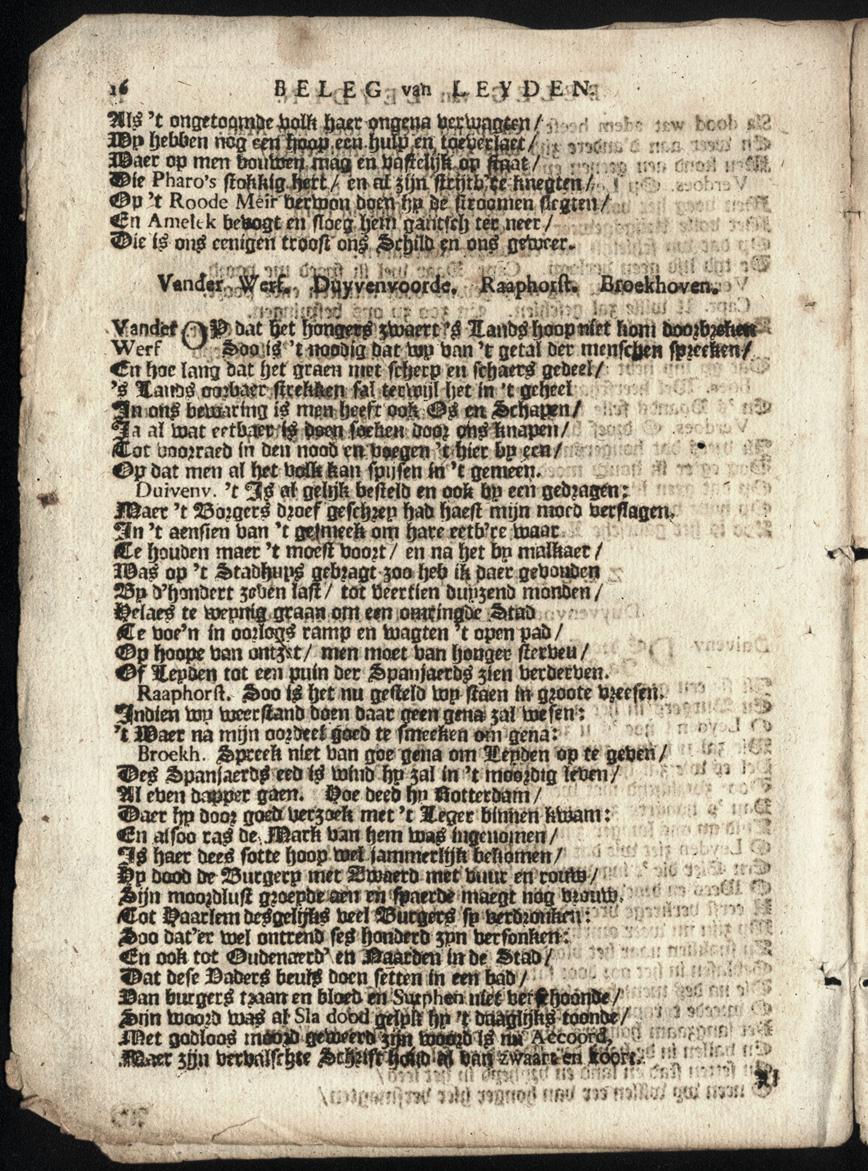 16 BELEG van LEYDEN.
Als 't ongetoomde volk haer ongena verwagten /
Wy hebben nog een hoop een hulp en toeverlaet /
Waer op men bouwen mag en vastelijk op staat /
Die Pharo's stokkig hert / en al zijn strijtb're knegten /
Op 't Roode Meir verwon doen hy de stroomen slegten /
En Amelek bevogt en sloeg hem gantsch ter neer /
Die is ons eenigen troost ons Schild en ons geweer.
Vander Werf. Duyvenvoorde. Raaphorst. Broekhoven.
Vander Werf OP dat het hongers zwaert 's Lands hoop niet kom doorbreken
Soo is 't noodig dat wy van 't getal der menschen spreeken /
En hoe lang dat het graen met scherp en schaers gedeel /
's Lands oorbaer strekken sal terwijl het in 't geheel
In ons bewaring is men heeft ook Os en Schapen /
Ja al wat eetbaer is doen soeken door ons knapen /
Tot voorraed in den nood en voegen 't hier by een /
Op dat men al het volk kan spijsen in 't gemeen.
Duivenv. 't Is al gelijk besteld en ook by een gedragen:
Maer 't Borgers droef geschrey had haest mijn moed verslagen.
In 't aensien van 't gesmeek om hare eetb're waar
Te houden maer 't moest voort / en na het by malkaer /
Was op 't Stadhuys gebragt zoo heb ik daer gevonden
By d'hondert zeven last / tot veertien duyzend monden /
Helaes te weynig graan om een omringde Stad
Te voe'n in oorlogs ramp en wagten 't open pad /
Op hoope van ontzet / men moet van honger sterven /
Of Leyden tot een puin der Spanjaerds zien verderven.
Raaphorst. Soo is het nu gesteld wy staen in groote vreesen.
Indien wy weerstand doen daar geen gena zal wesen:
't Waer na mijn oordeel goed te smeeken om gena:
Broekh. Spreek niet van goe gena om Leyden op te geven /
Des Spanjaerds eed is wind hy zal in 't moordig leven /
Al even dapper gaen. Hoe deed hy Rotterdam /
Daer hy door goed verzoek met 't Leger binnen kwam:
En alsoo ras de Mark van hem was ingenomen /
Is haer dees sotte hoop wel jammerlijk bekomen /
Hy dood de Burgery met Zwaerd met vuur en rouw /
Sijn moordlust groeyde aen en spaerde maegt nog vrouw.
Tot Haarlem desgelijks veel Burgers sy verdronken:
Soo dat'er wel ontrend ses honderd zyn versonken:
En ook tot Oudenaerd' en Naarden in de Stad /
Dat dese Vaders beuls doen setten in een bad /
Van burgers traan en bloed en Surphen niet verschoonde /
Sijn woord was al Sla dood gelijk hy 't daaglijks toonde /
Met godloos moord geweerd zijn woord is na Accoord,
Maer zijn vervalschte Schrift houd al van zwaart en koort.